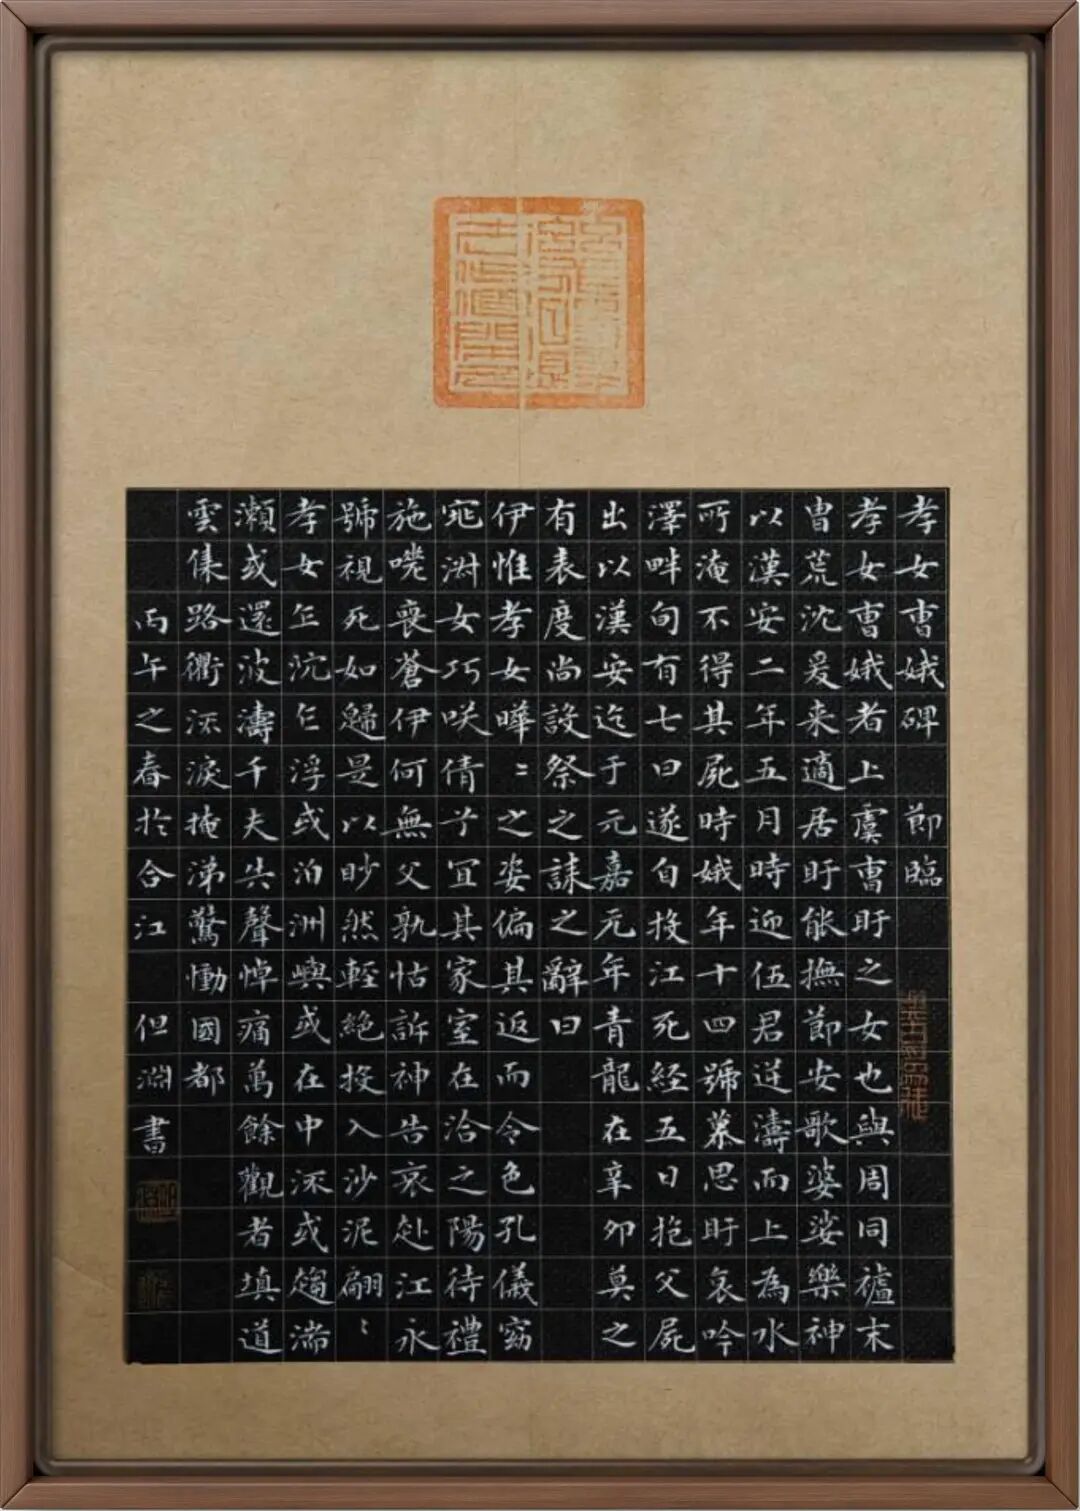 孝女曹娥碑 節臨
孝女曹娥者上虞曹盱之女也與周同𥙷末
曹荒沈爰来適居盱能撫節安歌婆娑樂神
以漢安二年五月時迎伍君逆濤而上為水
所淹不得其屍時娥年十四號慕思盱哀吟
澤畔旬有七日遂自投江死経五日抱父屍
出以漢安迄于元嘉元年青龍在辛卯莫之
有表度尚設祭之誄之辭曰
伊惟孝女曄〻之姿偏其返而令色孔儀窈
窕淑女巧咲倩兮宜其家室在洽之陽待禮
施嗟喪蒼伊何無父孰怙訴神告哀赴江永
號視死如歸是以眇然輕絕投入沙泥翩〻
孝女乍沉乍浮或泊洲嶼或在中流或趨湍
瀬或還波濤千夫失聲悼痛萬餘觀者填道
雲集路衢流淚掩涕驚慟國都
丙午之春於合江 但淵書